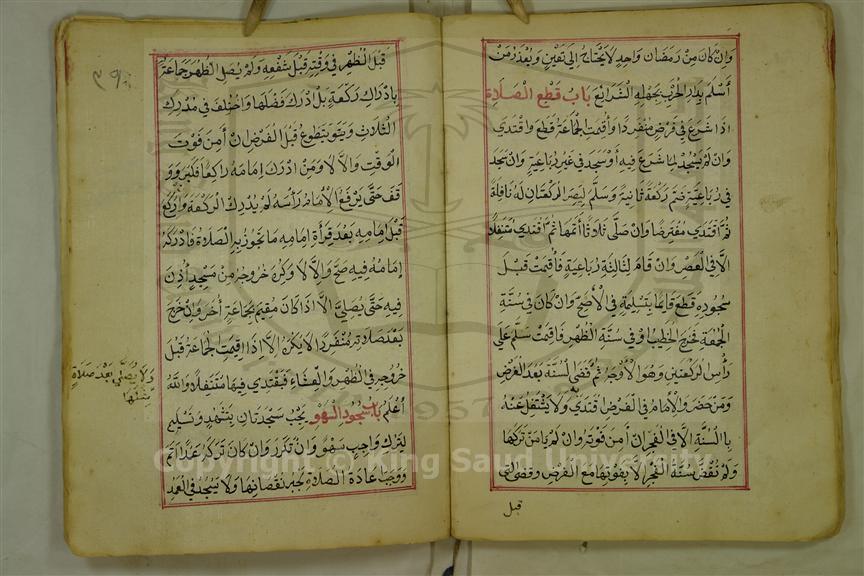 وان كان من رمضان واحد لا يحتاج الى تعين ويعذر من
اسلم بدار الحرب بجهله الشرائع باب قطع الصلاة
اذا شرع في فرض منفردا واقيمت الجماعة قطع واقتدى
وان لم يسجد لما شرع فيه او سجد في غير رباعية وان سجد
في رباعية ضم ركعة ثانية وسلم ليصر الركعتان له نافلة
ثم اقتدى مفترضا وان صلى ثلاثا اتمها ثم اقتدى متنفلا
الا في العصر وان قام لثالثة رباعية فاقيمت قبل
سجوده قطع قائما بتسليمة في الاصح وان كان في سنة
الجمعة فخرج الخطيب او في سنة الظهر فاقيمت سلم على
رأس الركعتين وهو الاوجه ثم قضى السنة بعد الفرض
ومن حضر والامام في الفرض اقتدى ولا يشتغل عنه
با السنة الا في الفجر ان امن فوته وان لم يأمن تركها
ولم تقض سنة الفجر الا بفوتها مع الفرض وقضى التى
قبل
قبل الظهر في وقته قبل شفعه ولم يصل الظهر جماعة
بادراك ركعة بل ادرك فضلها واختلف في مدرك
الثلاث ويتطوع قبل الفرض ان امن فوت
الوقت والا لا ومن ادرك امامه راكعا فكبر وو
قف حتى يرفع الامام رأسه لم يدرك الركعة وان ركع
قبل امامه بعد قرأة امامه ما تجوز به الصلاة فادركه
امامه فيه صح والا لا وكره خروجه من مسجد اذن
فيه حتى يصلي الا اذا كان مقيم جماعة اخر وان خرج
بعد صلاته منفردا لا يكره الا اذا اقيمت الجماعة قبل
خروجه في الظهر والعشاء فيقتدي فيها متنفلا والله
اعلم باب سجود السهو يجب سجدتان بتشهد وتسليم
لترك واجب سهو وان تكرر وان كان تركه عمدا اثم
ووجب عادة الصلاة لجبر نقصانها ولا يسجد في العمد
ولا يصلى بعد صلاة
مثلها
Copyright © King Saud University
1957